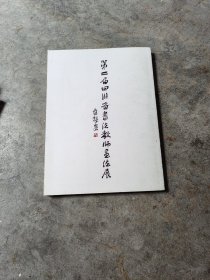 第一届四川省书法教师书法展